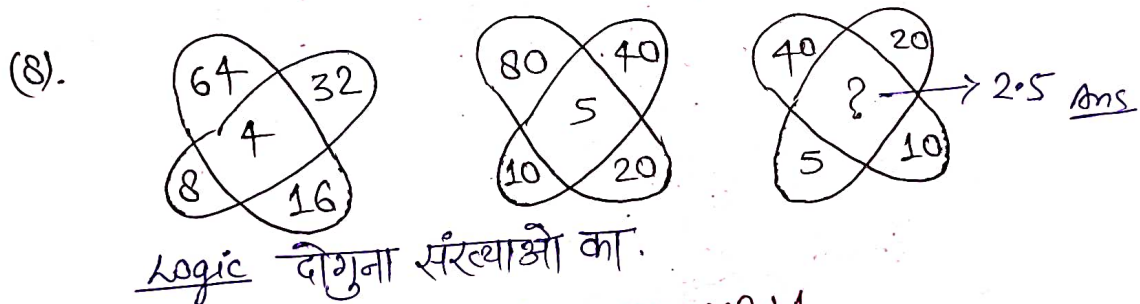 (8). 64 32 4 8 16 80 40 5 10 20 40 20 ? → 2.5 Ans 5 10
Logic दोगुना संख्याओ का.